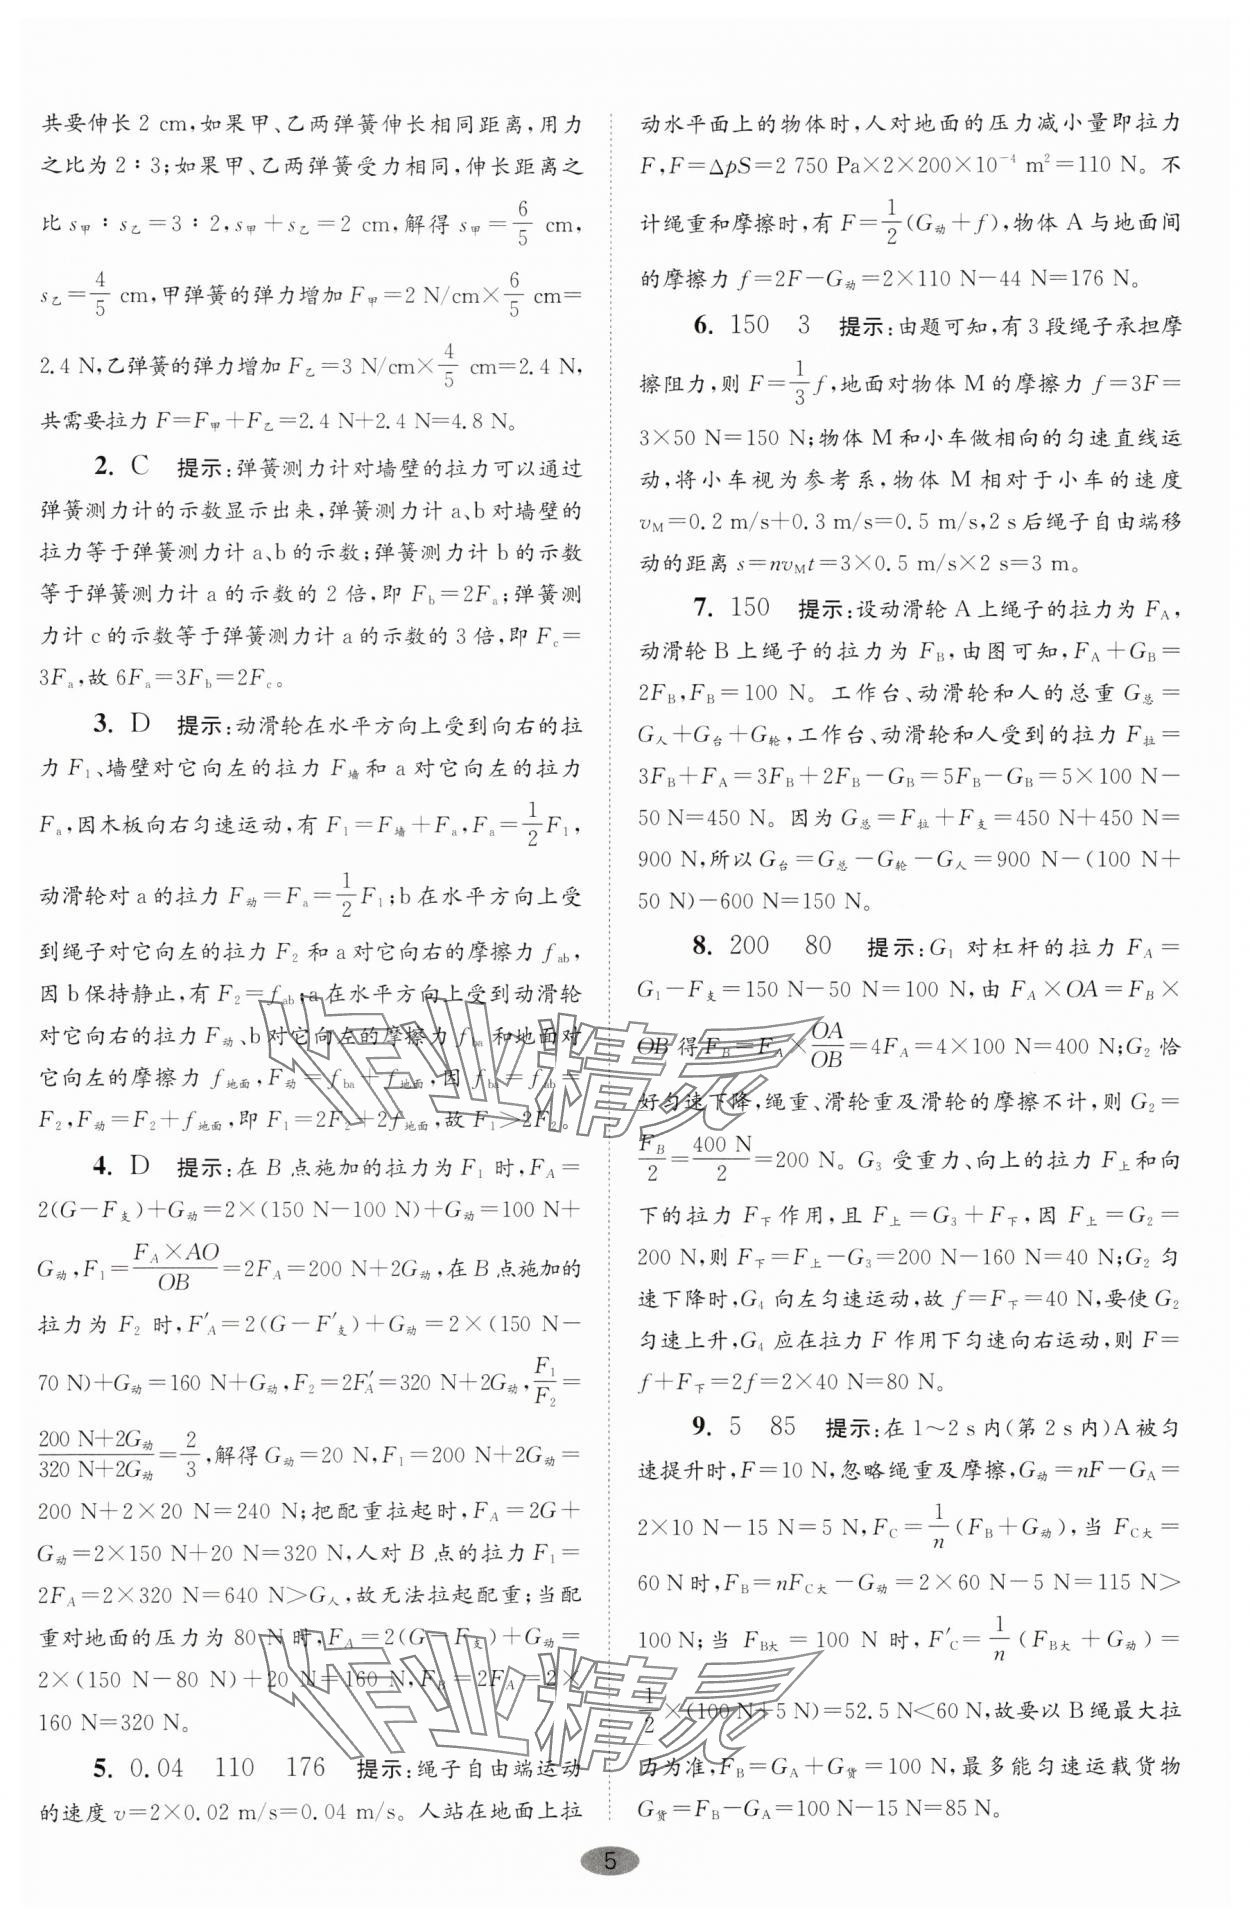 共要伸长 2 cm,如果甲、乙两弹簧伸长相同距离,用力
之比为 2∶3;如果甲、乙两弹簧受力相同,伸长距离之
比 s甲∶s乙=3∶2,s甲+s乙=2 cm,解得 s甲=6/5 cm,
s乙=4/5 cm,甲弹簧的弹力增加 F甲=2 N/cm×6/5 cm=
2.4 N,乙弹簧的弹力增加 F乙=3 N/cm×4/5 cm=2.4 N,
共需要拉力 F=F甲+F乙=2.4 N+2.4 N=4.8 N。
2. C 提示:弹簧测力计对墙壁的拉力可以通过
弹簧测力计的示数显示出来,弹簧测力计 a、b 对墙壁的
拉力等于弹簧测力计 a、b 的示数;弹簧测力计 b 的示数
等于弹簧测力计 a 的示数的 2 倍,即 Fb=2Fa;弹簧测
力计 c 的示数等于弹簧测力计 a 的示数的 3 倍,即 Fc=
3Fa,故 6Fa=3Fb=2Fc。
3. D 提示:动滑轮在水平方向上受到向右的拉
力 F1、墙壁对它向左的拉力 F墙 和 a 对它向左的拉力
Fa,因木板向右匀速运动,有 F1=F墙+Fa,Fa=1/2F1,
动滑轮对 a 的拉力 F动=Fa=1/2F1;b 在水平方向上受
到绳子对它向左的拉力 F2 和 a 对它向右的摩擦力 fab,
因 b 保持静止,有 F2=fab;a 在水平方向上受到动滑轮
对它向右的拉力 F动、b 对它向左的摩擦力 fba 和地面对
它向左的摩擦力 f地面,F动=fba+f地面,因 fba=fab=
F2,F动=F2+f地面,即 F1=2F2+2f地面,故 F1>2F2。
4. D 提示:在 B 点施加的拉力为 F1 时,FA=
2(G-F支)+G动=2×(150 N-100 N)+G动=100 N+
G动,F1=FA×AO/OB=2FA=200 N+2G动,在 B 点施加的
拉力为 F2 时,F′A=2(G-F′支)+G动=2×(150 N-
70 N)+G动=160 N+G动,F2=2F′A=320 N+2G动,F1/F2=
(200 N+2G动)/(320 N+2G动)=2/3,解得 G动=20 N,F1=200 N+2G动=
200 N+2×20 N=240 N;把配重拉起时,FA=2G+
G动=2×150 N+20 N=320 N,人对 B 点的拉力 F1=
2FA=2×320 N=640 N>G人,故无法拉起配重;当配
重对地面的压力为 80 N 时,FA=2(G-F支)+G动=
2×(150 N-80 N)+20 N=160 N,FB=2FA=2×
160 N=320 N。
5. 0.04 110 176 提示:绳子自由端运动
的速度 v=2×0.02 m/s=0.04 m/s。人站在地面上拉
动水平面上的物体时,人对地面的压力减小量即拉力
F,F=ΔpS=2 750 Pa×2×200×10⁻⁴ m²=110 N。不
计绳重和摩擦时,有 F=1/2(G动+f),物体 A 与地面间
的摩擦力 f=2F-G动=2×110 N-44 N=176 N。
6. 150 3 提示:由题可知,有 3 段绳子承担摩
擦阻力,则 F=1/3f,地面对物体 M 的摩擦力 f=3F=
3×50 N=150 N;物体 M 和小车做相向的匀速直线运
动,将小车视为参考系,物体 M 相对于小车的速度
vM=0.2 m/s+0.3 m/s=0.5 m/s,2 s 后绳子自由端移
动的距离 s=nvMt=3×0.5 m/s×2 s=3 m。
7. 150 提示:设动滑轮 A 上绳子的拉力为 FA,
动滑轮 B 上绳子的拉力为 FB,由图可知,FA+GB=
2FB,FB=100 N。工作台、动滑轮和人的总重 G总=
G人+G台+G轮,工作台、动滑轮和人受到的拉力 F拉=
3FB+FA=3FB+2FB-GB=5FB-GB=5×100 N-
50 N=450 N。因为 G总=F拉+F支=450 N+450 N=
900 N,所以 G台=G总-G轮-G人=900 N-(100 N+
50 N)-600 N=150 N。
8. 200 80 提示:G1 对杠杆的拉力 FA=
G1-F支=150 N-50 N=100 N,由 FA×OA=FB×
OB 得 FB=FA×OA/OB=4FA=4×100 N=400 N;G2 恰
好匀速下降,绳重、滑轮重及滑轮的摩擦不计,则 G2=
FB/2=400 N/2=200 N。G3 受重力、向上的拉力 F上和向
下的拉力 F下作用,且 F上=G3+F下,因 F上=G2=
200 N,则 F下=F上-G3=200 N-160 N=40 N;G2 匀
速下降时,G4 向左匀速运动,故 f=F下=40 N,要使 G2
匀速上升,G4 应在拉力 F 作用下匀速向右运动,则 F=
f+F下=2f=2×40 N=80 N。
9. 5 85 提示:在 1~2 s 内(第 2 s 内)A 被匀
速提升时,F=10 N,忽略绳重及摩擦,G动=nF-GA=
2×10 N-15 N=5 N,FC=1/n(FB+G动),当 FC大=
60 N 时,FB=nFC大-G动=2×60 N-5 N=115 N>
100 N;当 FB大=100 N 时,F′C=1/n(FB大+G动)=
1/2×(100 N+5 N)=52.5 N<60 N,故要以 B 绳最大拉
力为准,FB=GA+G货=100 N,最多能匀速运载货物
G货=FB-GA=100 N-15 N=85 N。
作业精灵
作业精灵
5